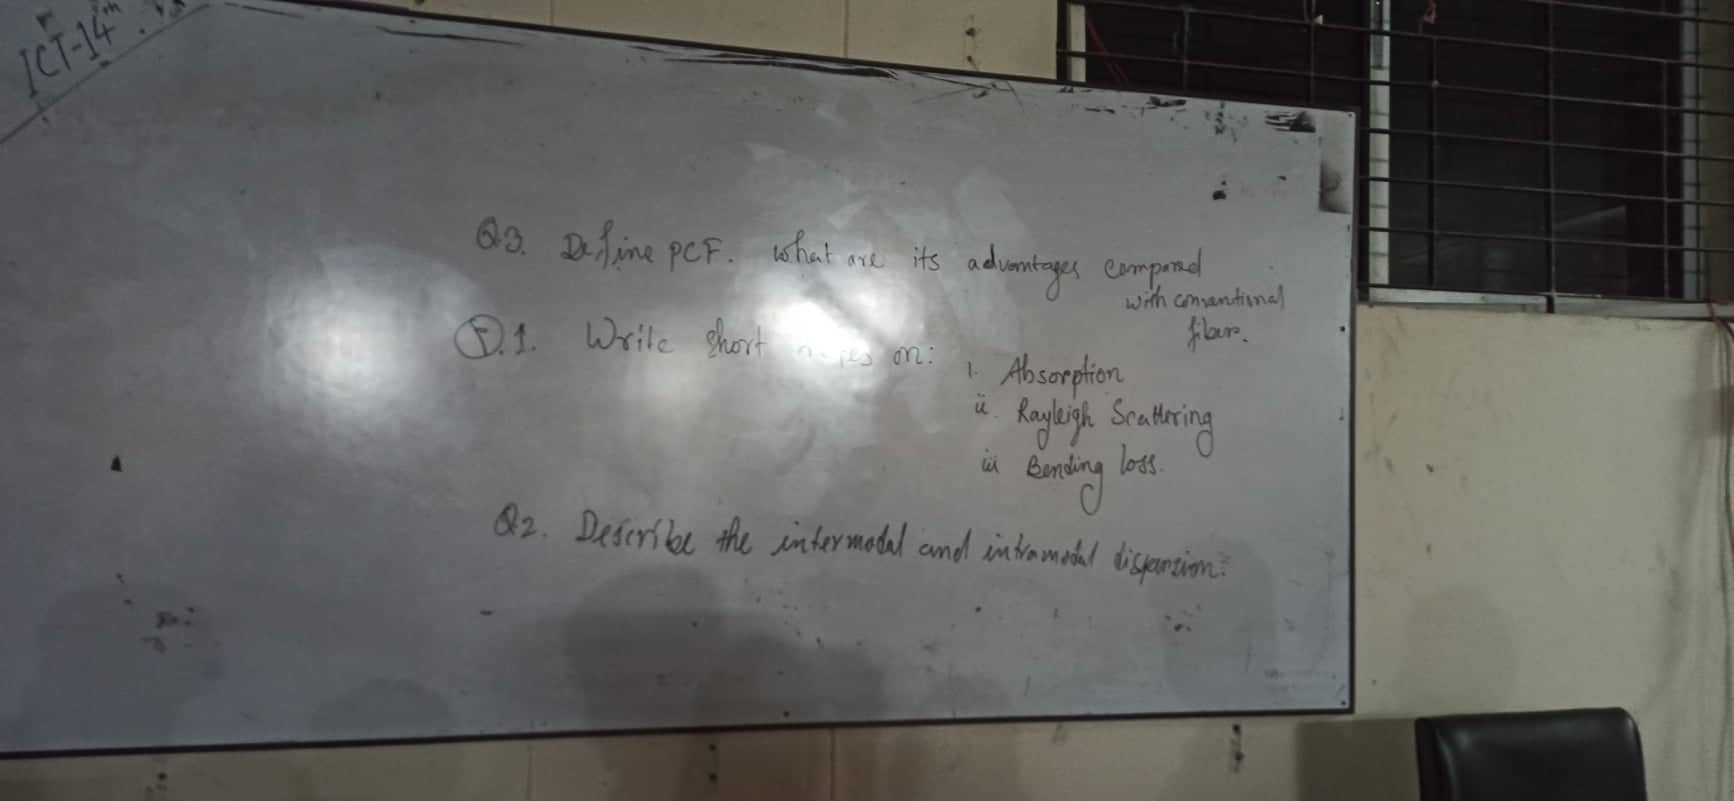 ICT-14th
Q3. Define PCF. What are its advantages compared
with conventional
fiber.
Q.1. Write short notes on:
i. Absorption
ii. Rayleigh Scattering
iii Bending loss.
Q2. Describe the intermodal and intramodal dispersion.